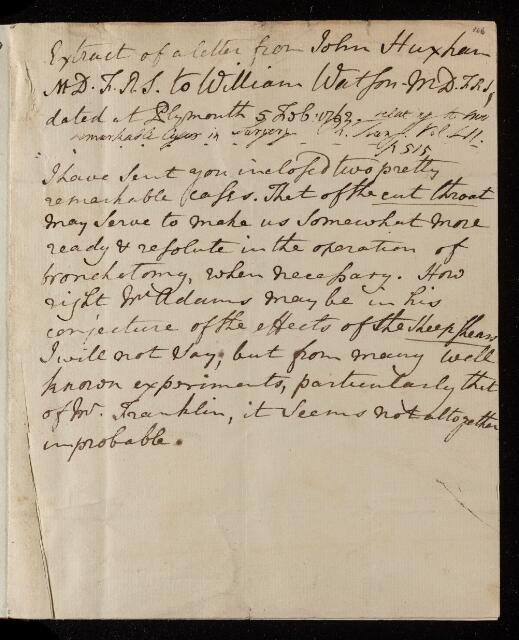 166
Extract of a letter from John Huxham
M.D. F.R.S. to William Watson M.D. F.R.S.
dated at Plymouth 5 Feb. 1762. relat g to two
remarkable Cases in Surgery Ph. Trans. Vol. LII.
p. 515
I have sent you inclosed two pretty
remarkable cases. That of the cut throat
may serve to make us somewhat more
ready & resolute in the operation of
bronchotomy, when necessary. How
right Mr. Adams may be in his
conjecture of the effects of the Sheep shears
I will not say, but from many well
known experiments, particularly that
of Mr. Franklin, it seems not altogether
improbable.